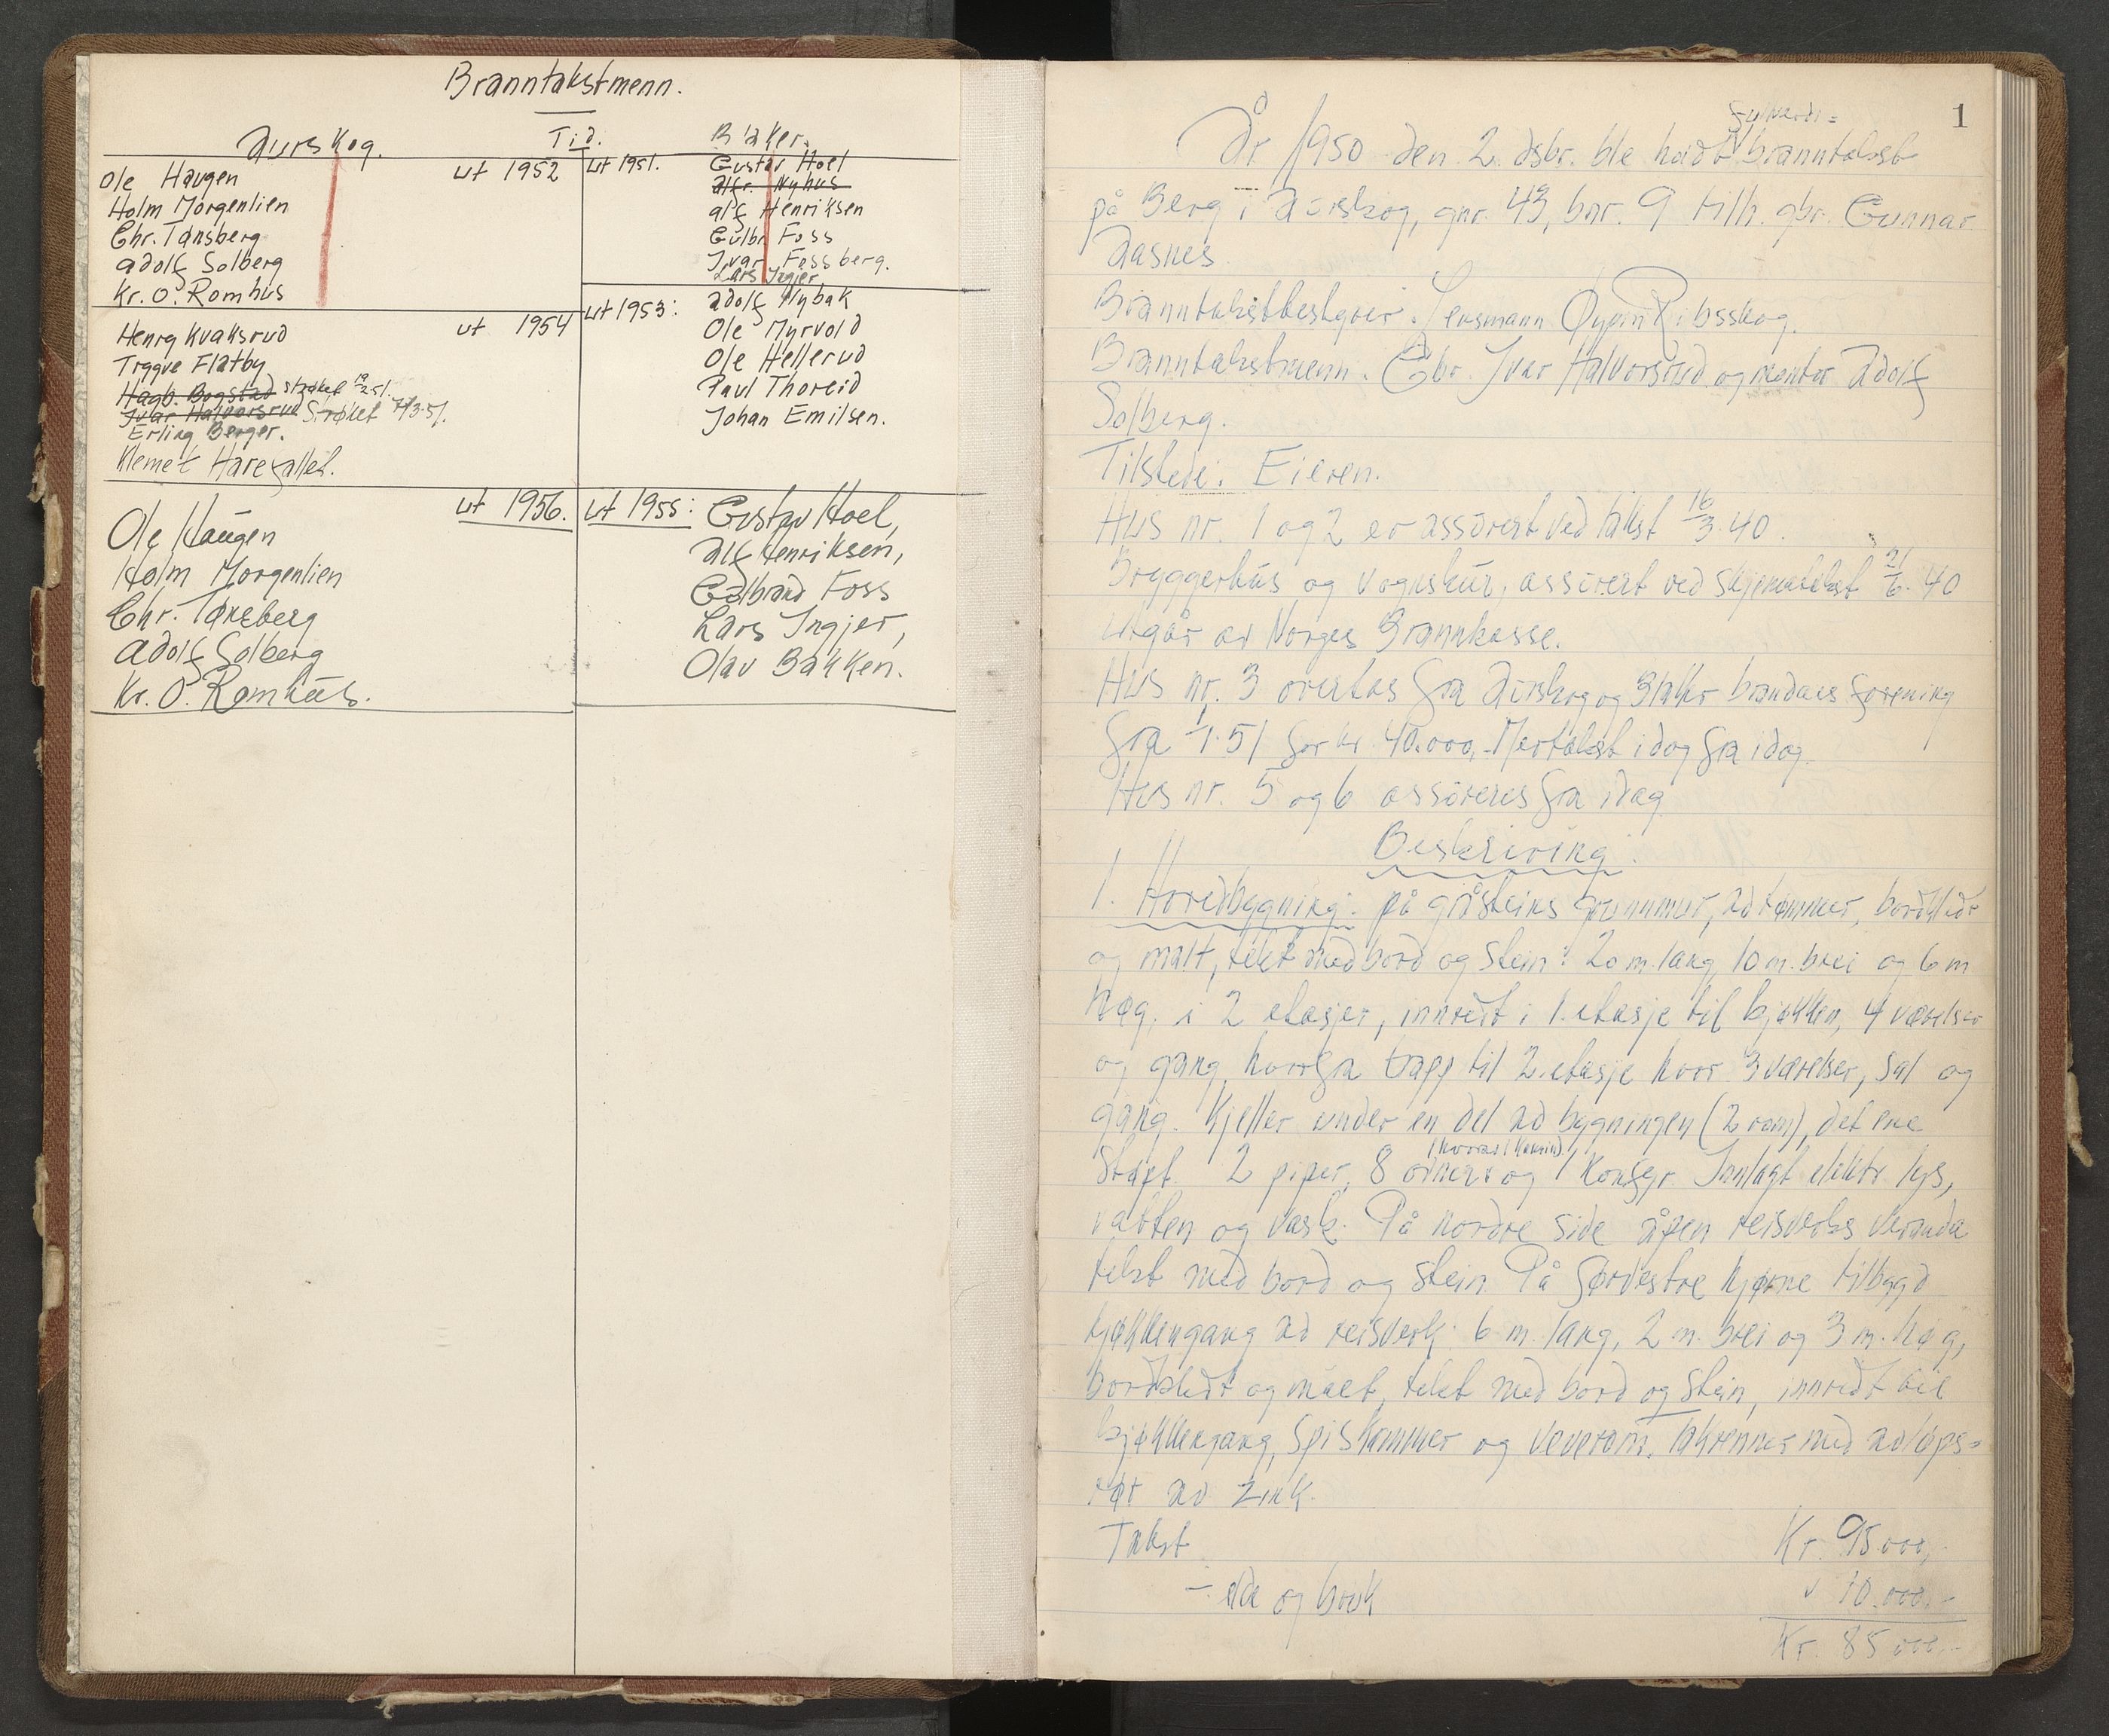 Branntakstmenn.
Aurskog.
Tid.
Blaker.
Ole Haugen
ut 1952
Holm Morgenlien
Chr. Tønsberg
Adolf Solberg
Kr. O. Romhus
ut 1951.
Gustav Hoel
Alfr. Nyhus
Alf Henriksen
Gulbr. Foss
Ivar Fossberg.
Lars Ingjer
Henry Kvaksrud
ut 1954
Trygve Flatby
Hagb. Bogstad strøket
Ivar Halvorsrud Strøket 7/3.51.
Erling Berger.
Klemet Harefallet.
ut 1953:
Adolf Nybak
Ole Myrvold
Ole Hellerud
Paul Thoreid
Johan Emilsen.
Ole Haugen
ut 1956.
Holm Morgenlien
Chr. Tønsberg
Adolf Solberg
Kr. O. Romhus.
ut 1955:
Gustav Hoel,
Alf Henriksen,
Gulbrand Foss
Lars Ingjer,
Olav Bakken.
1
fullverdi=
År 1950 den 2. dsbr. ble holdt branntakst
på Berg i Aurskog, gnr. 43, bnr. 9 tilh. gbr. Gunnar
Aasnes.
Branntakstbestyrer: Lensmann Øyvin Ribsskog.
Branntakstmenn: Gbr. Ivar Halvorsrud og montør Adolf
Solberg.
Tilstede: Eieren.
Hus nr. 1 og 2 er assurert ved takst 16/3.40.
Bryggerhus og vognskur, assurert ved skjematakst 21/6.40
utgår av Norges Brannkasse.
Hus nr. 3 overtas fra Aurskog og Blaker brandassforening
fra 1/1.51 for kr. 40.000,- Mertakst idag fra idag.
Hus nr. 5 og 6 assureres fra idag
Beskriving.
1. Hovedbygning. på gråsteins grunnmur, av tømmer, bordkledt
og malt, tekt med bord og stein: 20 m. lang 10 m. brei og 6 m
høg. i 2 etasjer, innredt i 1. etasje til kjøkken, 4 værelser
og gang, hvorfra trapp til 2. etasje hvor 3 værelser, sal og
gang. Kjeller under en del av bygningen (2 rom), det ene
(hvorav 1 kamin)
støpt. 2 piper, 8 ovner og 1 komfyr. Innlagt elektr. lys,
vatten og vask. På nordre side åpen reisverks veranda
tekt med bord og stein. På sørvestre hjørne tilbygd
kjøkkengang av reisverk: 6 m. lang, 2 m. brei og 3 m. høg,
bordkledt og malt, tekt med bord og stein, innredt til
kjøkkengang, spiskammer og veverom. Takrenner med avløps-
rør av zink.
Takst
Kr. 95.000,-
- elde og bruk
" 10.000.-
Kr. 85.000.-